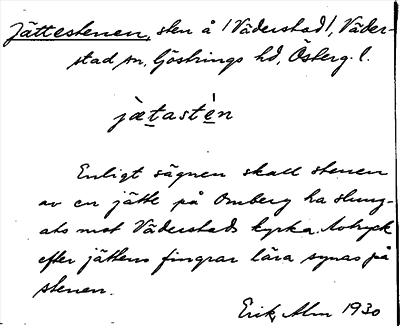 Jättestenen, sten å /Väderstad/, Väder-
stad sn, Göstrings hd, Österg. l.
jætastén
Enligt sägnen skall stenen
av en jätte på Omberg ha slung-
ats mot Väderstads kyrka. Avtryck
efter jättens fingrar lära synas på
stenen.
Erik Alm 1930